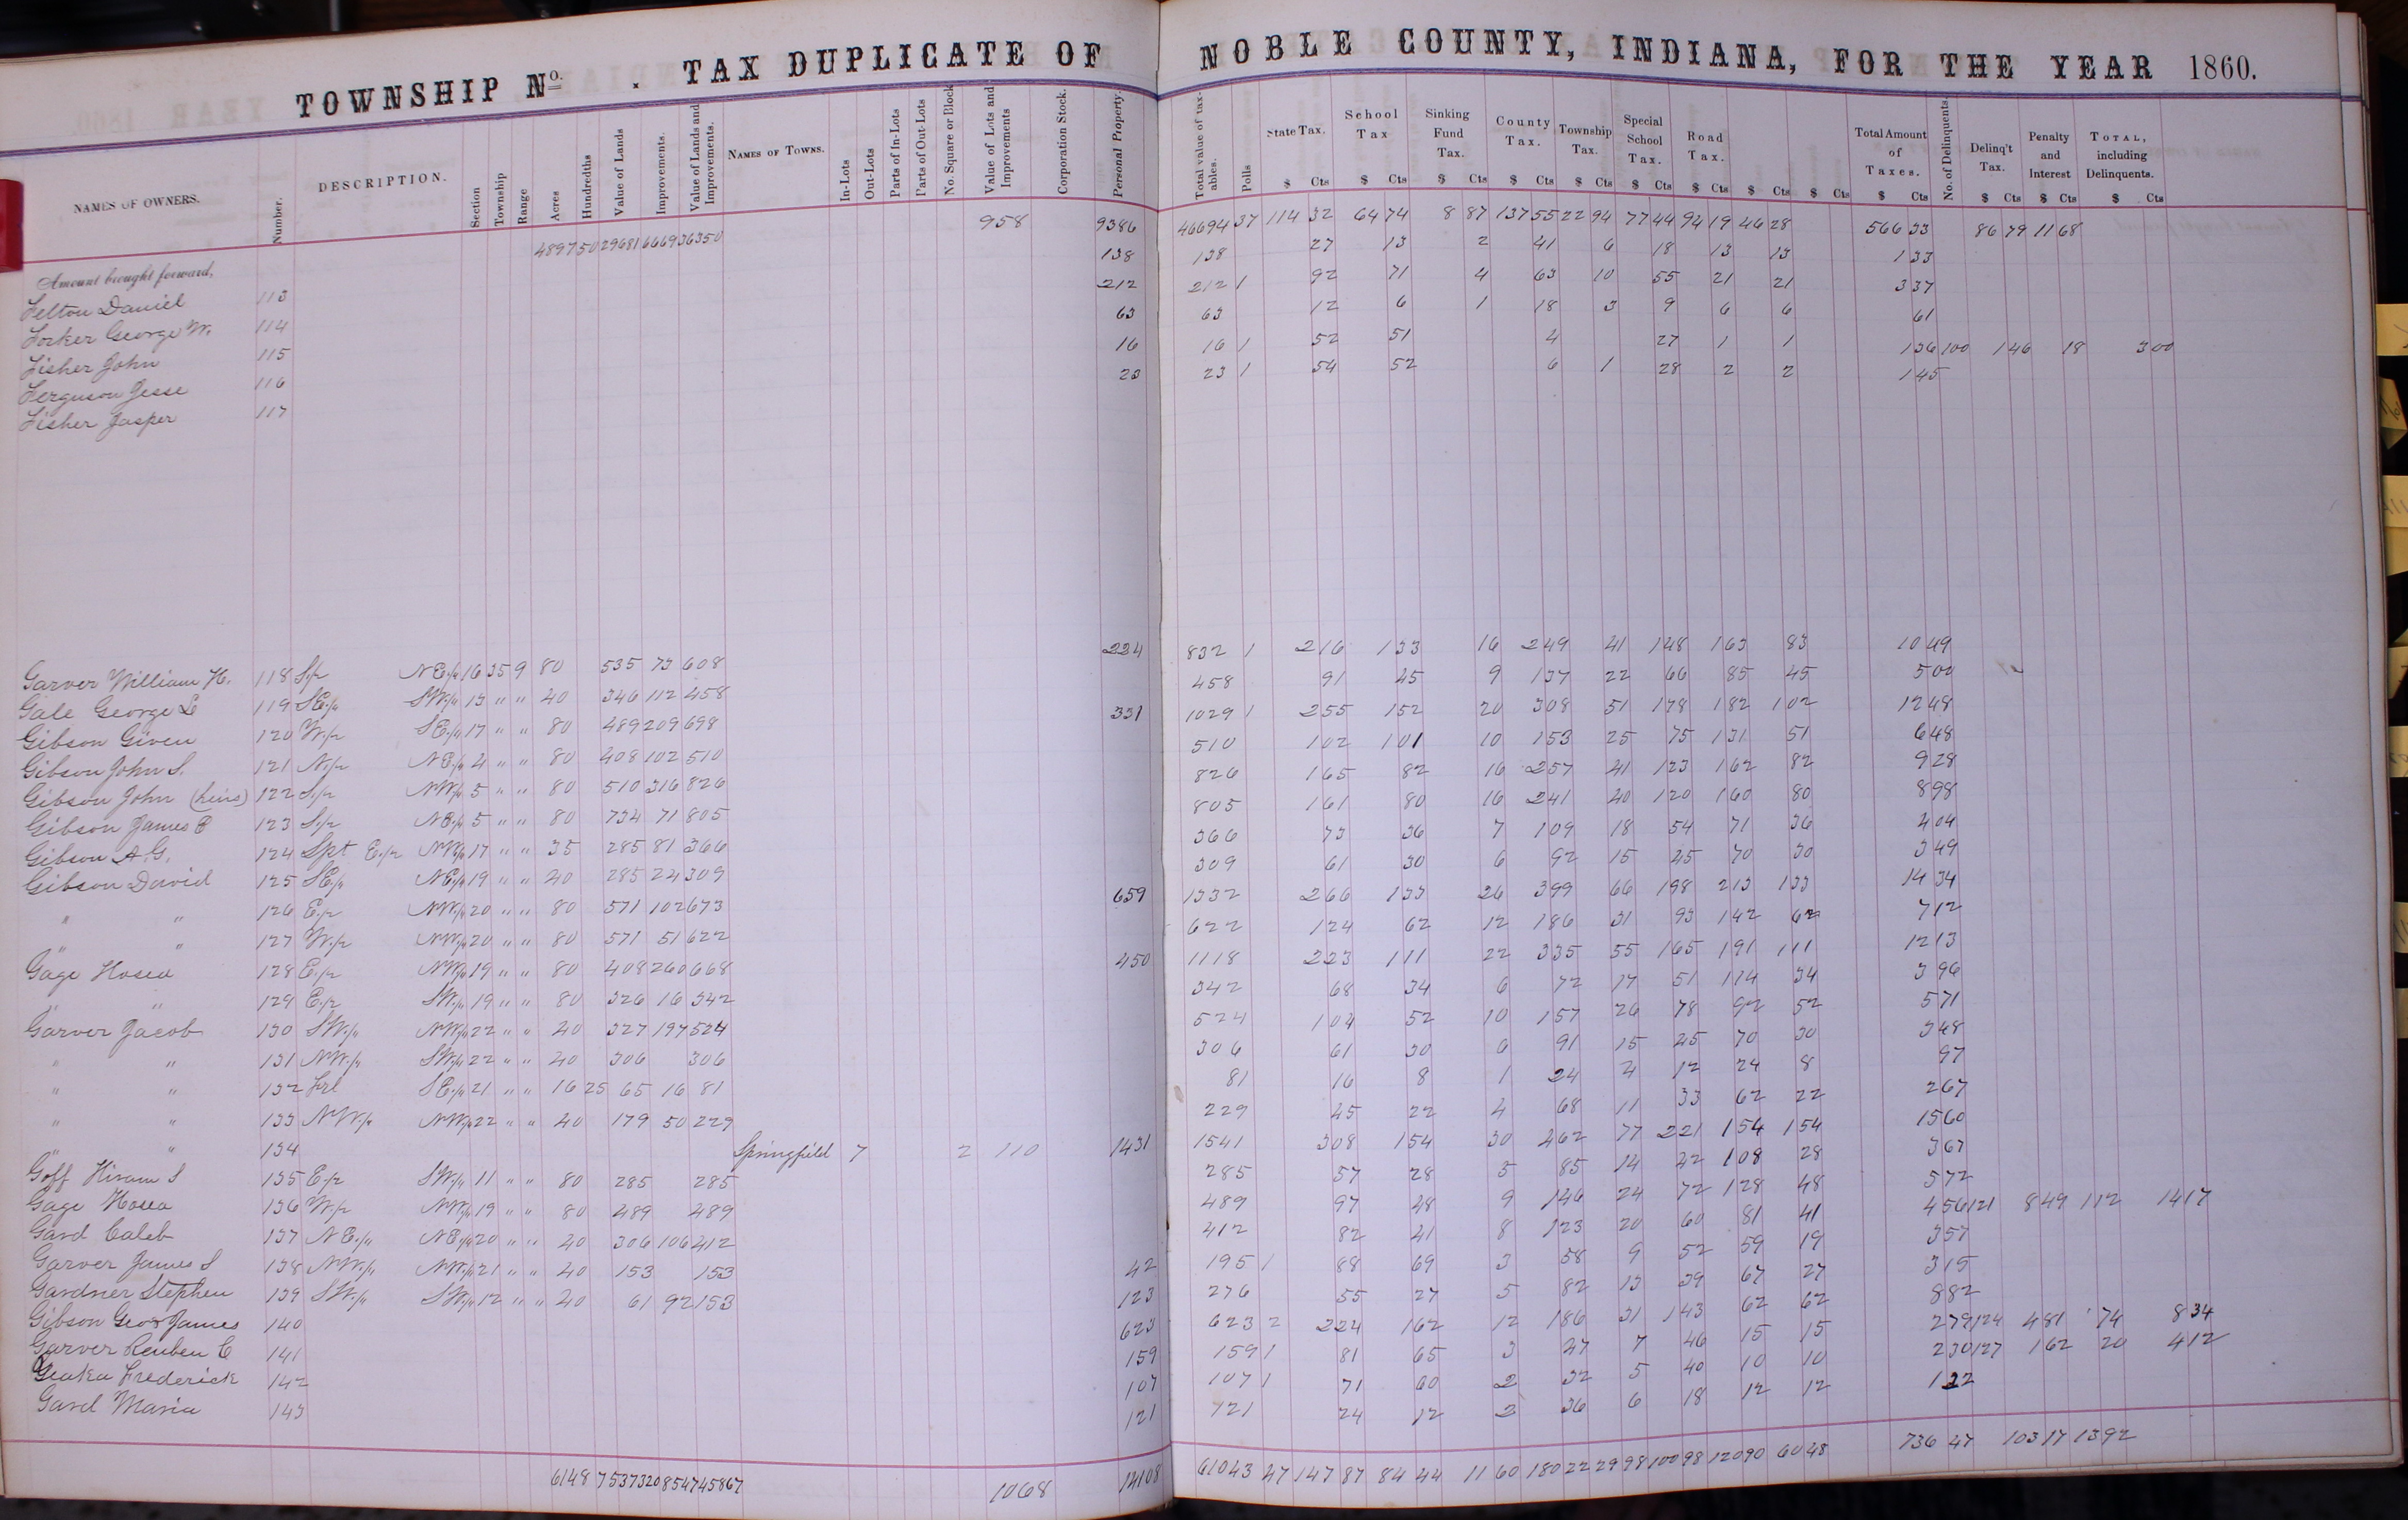 TOWNSHIP No. . TAX DUPLICATE OF NOBLE COUNTY, INDIANA, FOR THE YEAR 1860.
NAMES OF OWNERS. Number. DESCRIPTION. Section Township Range Acres Hundredths Value of Lands Improvements. Value of Lands and Improvements. NAMES OF TOWNS. In-Lots Out-Lots Parts of In-Lots Parts of Out-Lots No. Square or Block Value of Lots and Improvements Corporation Stock. Personal Property. Total value of taxables. Polls State Tax. School Tax Sinking Fund Tax. County Tax. Township Tax. Special School Tax. Road Tax. Total Amount of Taxes. No. of Delinquents. Delinq't Tax. Penalty and Interest TOTAL, including Delinquents.
$ Cts $ Cts $ Cts $ Cts $ Cts $ Cts $ Cts $ Cts $ Cts $ Cts $ Cts $ Cts $ Cts
Amount brought forward, 4897 50 29681 6669 36350 958 9386 46694 37 114 32 64 74 8 87 137 55 22 94 77 44 94 19 46 28 566 33 86 79 11 68
Felton Daniel 113 138 138 27 13 2 41 6 18 13 13 1 33
Forker George W. 114 212 212 1 92 71 4 63 10 55 21 21 3 37
Fisher John 115 63 63 12 6 1 18 3 9 6 6 61
Ferguson Jesse 116 16 16 1 52 51 4 27 1 1 1 36 100 1 46 18 3 00
Fisher Jasper 117 23 23 1 54 52 6 1 28 2 2 1 45
Garver William H. 118 S.½ NE.¼ 16 35 9 80 535 73 608 224 832 1 2 16 1 33 16 2 49 41 1 48 1 63 83 10 49
Gale George L 119 SE.¼ SW.¼ 13 " " 40 346 112 458 458 91 45 9 1 37 22 66 85 45 5 00
Gibson Given 120 W.½ SE.¼ 17 " " 80 489 209 698 331 1029 1 2 55 1 52 20 3 08 51 1 78 1 82 1 02 12 48
Gibson John S. 121 N.½ NE.¼ 4 " " 80 408 102 510 510 1 02 1 01 10 1 53 25 75 1 31 51 6 48
Gibson John (heirs) 122 S.½ NW.¼ 5 " " 80 510 316 826 826 1 65 82 16 2 57 41 1 23 1 62 82 9 28
Gibson James B 123 S.½ NE.¼ 5 " " 80 734 71 805 805 1 61 80 16 2 41 40 1 20 1 60 80 8 98
Gibson A.G. 124 Spt E.½ NW.¼ 17 " " 35 285 81 366 366 73 36 7 1 09 18 54 71 36 4 04
Gibson David 125 SE.¼ NE.¼ 19 " " 40 285 24 309 309 61 30 6 92 15 45 70 30 3 49
" " 126 E.½ NW.¼ 20 " " 80 571 102 673 659 1332 2 66 1 33 26 3 99 66 1 98 2 13 1 33 14 34
" " 127 W.½ NW.¼ 20 " " 80 571 51 622 622 1 24 62 12 1 86 31 93 1 42 62 7 12
Gage Hosea 128 E.½ NW.¼ 19 " " 80 408 260 668 450 1118 2 23 1 11 22 3 35 55 1 65 1 91 1 11 12 13
" " 129 E.½ SW.¼ 19 " " 80 326 16 342 342 68 34 6 72 17 51 1 14 34 3 96
Garver Jacob 130 SW.¼ NW.¼ 22 " " 40 327 197 524 524 1 04 52 10 1 57 26 78 92 52 5 71
" " 131 NW.¼ SW.¼ 22 " " 40 306 306 306 61 30 6 91 15 45 70 30 3 48
" " 132 Frl SE.¼ 21 " " 16 25 65 16 81 81 16 8 1 24 4 12 24 8 97
" " 133 NW.¼ NW.¼ 22 " " 40 179 50 229 229 45 22 4 68 11 33 62 22 2 67
" " 134 Springfield 7 2 110 1431 1541 3 08 1 54 30 4 62 77 2 21 1 54 1 54 15 60
Goff Hiram S 135 E.½ SW.¼ 11 " " 80 285 285 285 57 28 5 85 14 42 1 08 28 3 67
Gage Hosea 136 W.½ NW.¼ 19 " " 80 489 489 489 97 48 9 1 46 24 72 1 28 48 5 72
Gard Caleb 137 NE.¼ NE.¼ 20 " " 40 306 106 412 412 82 41 8 1 23 20 60 81 41 4 56 121 8 49 1 12 14 17
Garver James S 138 NW.¼ NW.¼ 21 " " 40 153 153 42 195 1 88 69 3 58 9 52 59 19 3 57
Gardner Stephen 139 SW.¼ SW.¼ 12 " " 40 61 92 153 123 276 55 27 5 82 13 39 67 27 3 15
Gibson Geo & James 140 623 623 2 2 24 1 62 12 1 86 31 1 43 62 62 8 82
Garver Reuben C 141 159 159 1 81 65 3 47 7 46 15 15 2 79 124 4 81 74 8 34
Frederick 142 107 107 1 71 60 2 32 5 40 10 10 2 30 127 1 62 20 4 12
Gard Maria 143 121 121 24 12 2 36 6 18 12 12 1 22
6148 75 37320 8547 45867 1068 14108 61043 47 147 87 84 44 11 60 180 22 29 98 100 98 120 90 60 48 736 47 103 17 13 92